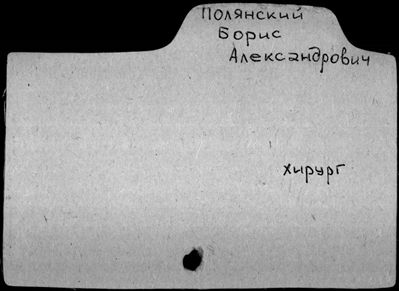 Полянский
Борис
Александрович
хирург